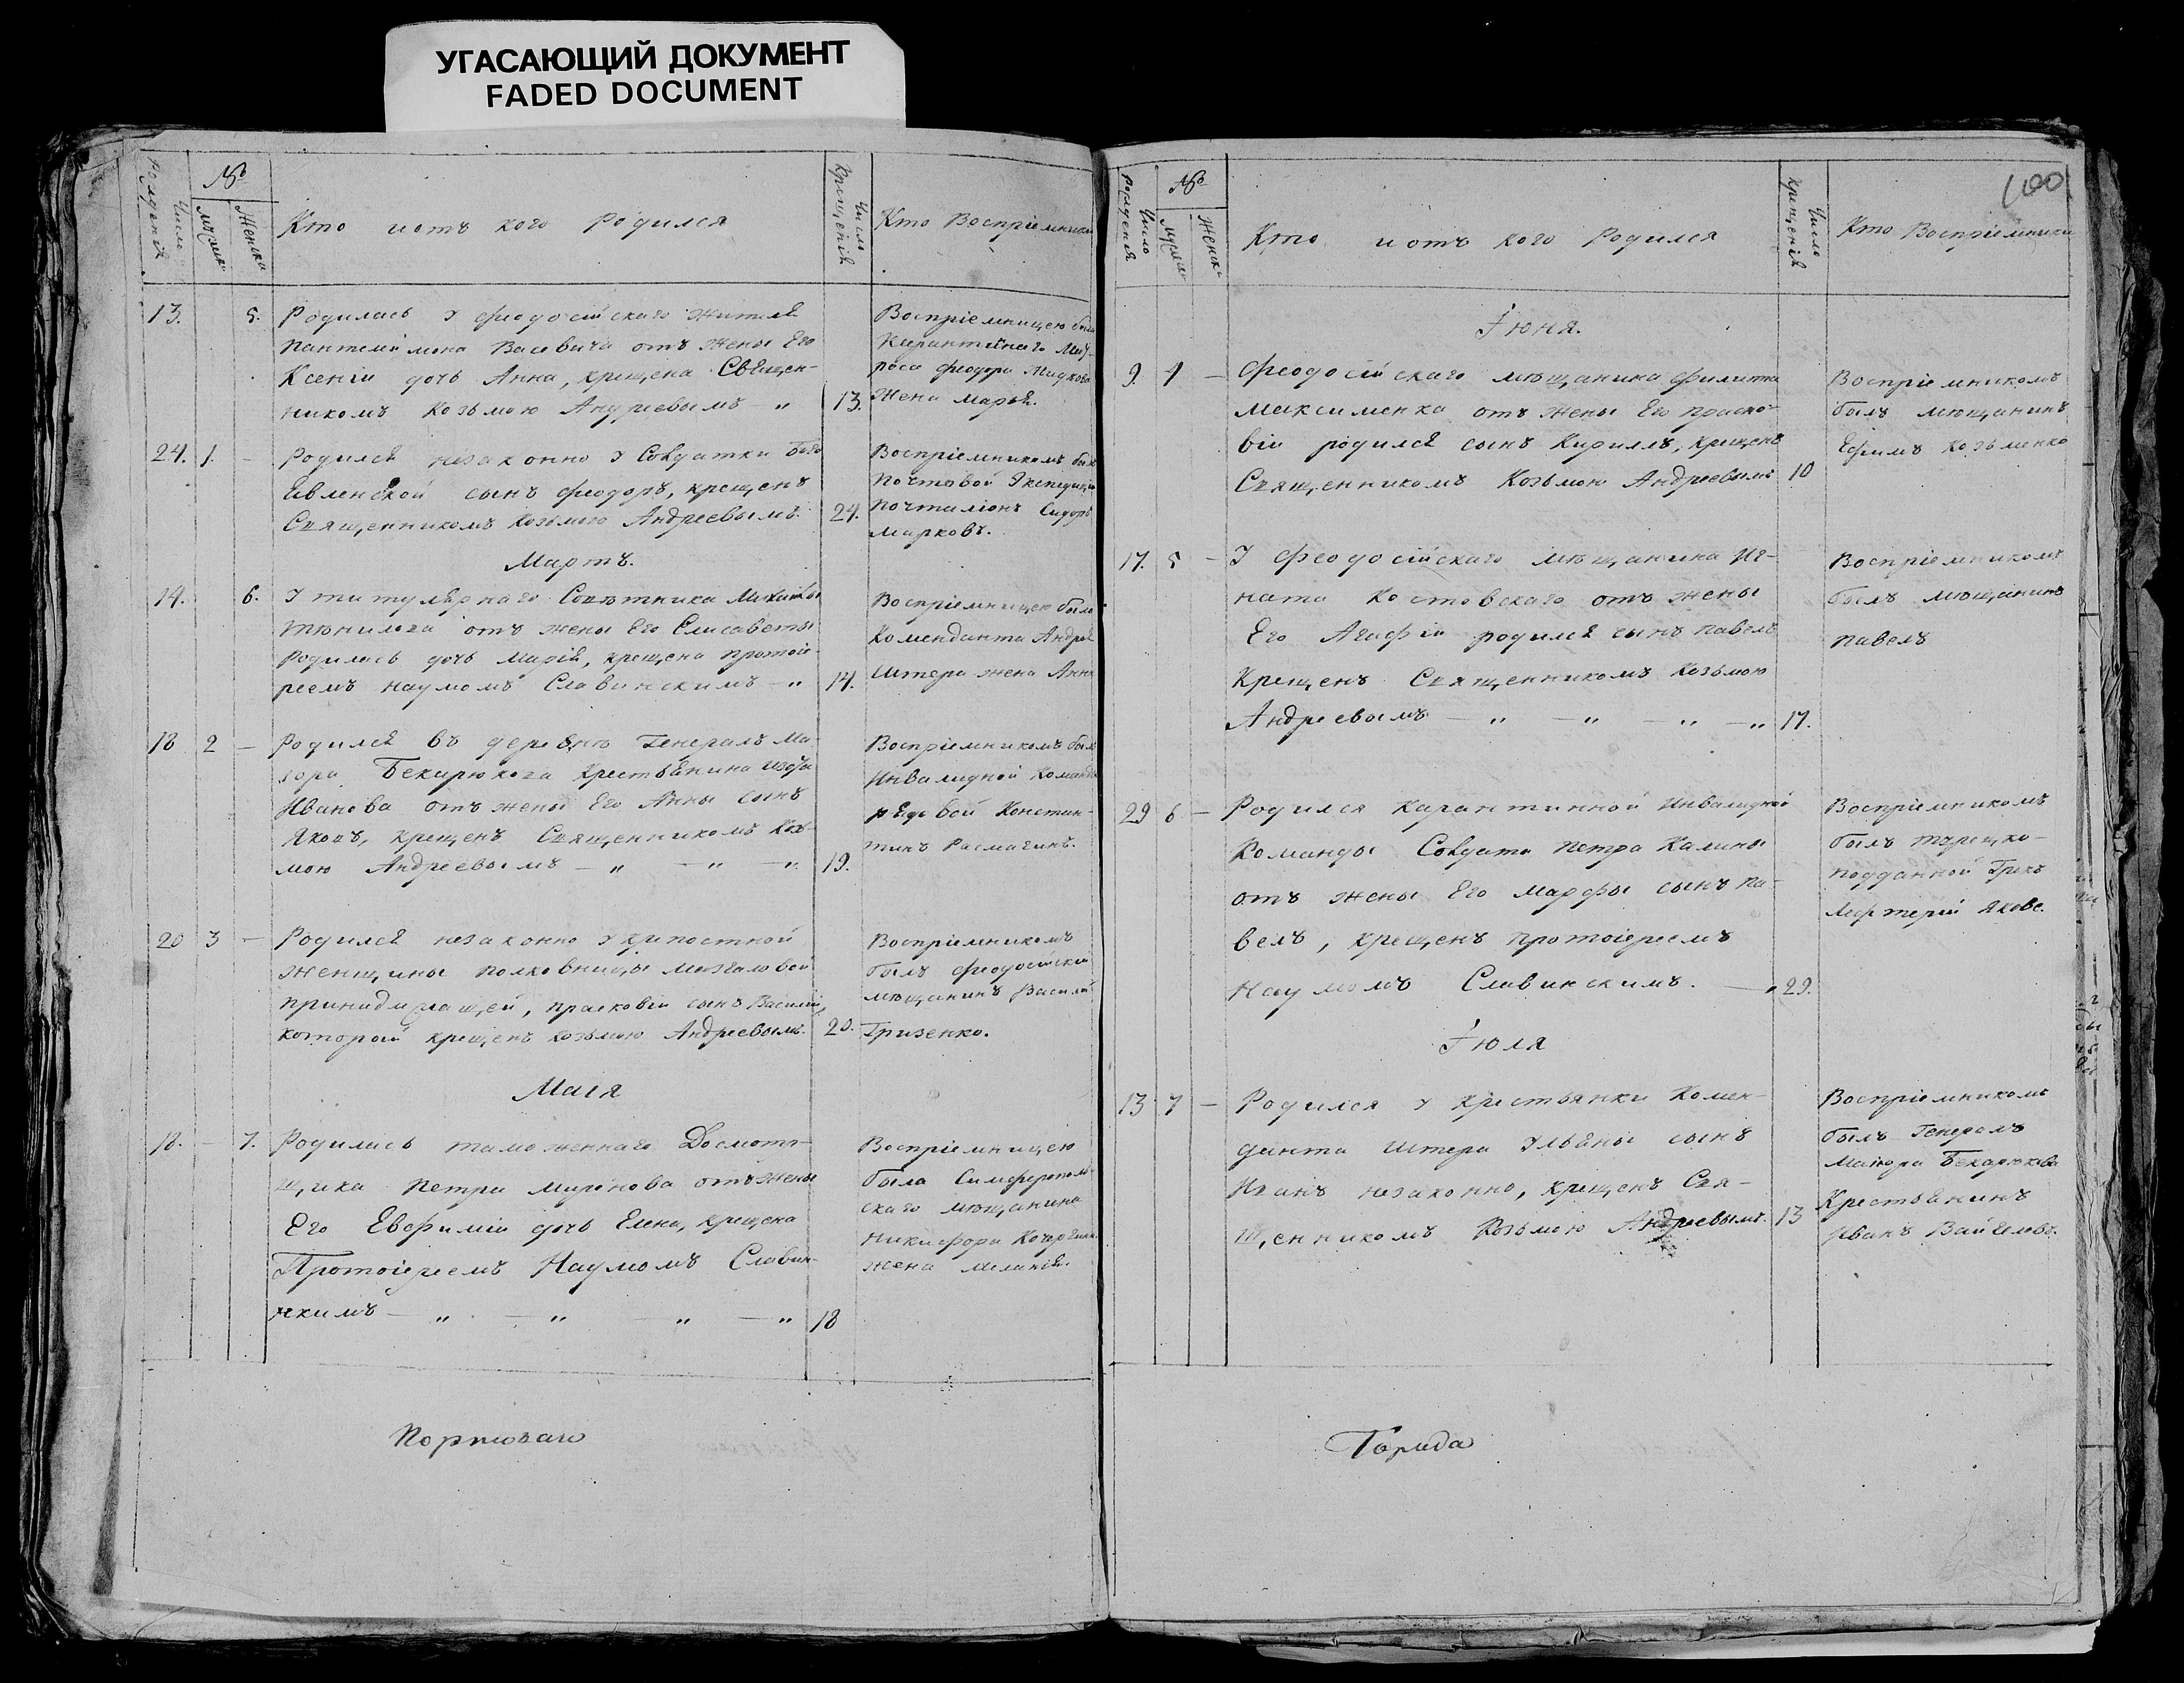 УГАСАЮЩИЙ ДОКУМЕНТ
FADED DOCUMENT
Число рожденія
№
Мужеска
Женска
Кто и отъ кого Родился
Число Крещенія
Кто Воспріемники
13. 5. Родилась у феодосійскаго жителя
Пантелимона Васевича отъ жены Его
Ксеніи дочь Анна, крещена Священ-
никомъ Козьмою Андреевымъ 13.
Воспріемницею была
Карантиннаго Мат-
роса феодора
жена Марья.
24. 1. Родился незаконно у Солдатки
сынъ феодоръ, крещенъ
Священникомъ Козьмою Андреевымъ. 24.
Воспріемникомъ былъ
Почтовой Экспедиціи
почталіонъ Сидоръ
Марковъ.
Мартъ.
14. 6. У титулярнаго Советника Михаила
отъ жены Его Елисаветы
родилась дочь Марія, крещена протоіе-
реемъ Наумомъ Славинскимъ 14.
Воспріемницею была
Коменданта Андрея
Штера жена Анна
18 2 Родился въ деревне Генералъ Ма-
іора Бекарюкова Крестьянина
Иванова отъ жены Его Анны сынъ
Яковъ, крещенъ Священникомъ Козь-
мою Андреевымъ 19.
Воспріемникомъ былъ
Инвалидной Команды
рядовой Констан-
тинъ Расмагинъ.
20 3 Родился незаконно у крипостной
женщины полковницы
принадлежащей, прасковіи сынъ Василій,
которой крещенъ Козьмою Андреевымъ. 20.
Воспріемникомъ
былъ феодосійской
мѣщанинъ Василій
Гризенко.
Маія
18. 7. Родилась таможеннаго Досмотр-
щика Петра Миронова отъ жены
Его Евфиміи дочь Елена, крещена
Протоіереемъ Наумомъ Славин-
скимъ 18
Воспріемницею
была Симферополь-
скаго мѣщанина
Никифора
жена Меланія.
Портоваго
100
Число рожденія
№
Мужеска
Женска
Кто и отъ кого Родился
Число Крещенія
Кто Воспріемники
Іюня.
9. 4 феодосійскаго мѣщанина филипа
Максименка отъ жены Его праско-
віи родился сынъ Кирилъ, крещенъ
Священникомъ Козьмою Андреевымъ 10
Воспріемникомъ
былъ мѣщанинъ
Ефимъ Козьменко
17. 5 У феодосійскаго мѣщанина Иг-
ната Костовскаго отъ жены
Его Агафіи родился сынъ павелъ
Крещенъ Священникомъ Козьмою
Андреевымъ 17.
Воспріемникомъ
былъ мѣщанинъ
павелъ
29 6 Родился карантинной инвалидной
Команды Солдата петра Калины
отъ жены Его марфы сынъ па-
велъ, крещенъ протоіереемъ
Наумомъ Славинскимъ. 29.
Воспріемникомъ
былъ турецко-
подданной Грекъ
Лефтерій Якове.
Іюля
13 7 Родился у крестьянки Комен-
данта Штера Ульяны сынъ
Иванъ незаконно, крещенъ Свя-
щенникомъ Козьмою Андреевымъ. 13
Воспріемникомъ
былъ Генералъ
Маіора Бекарюкова
Крестьянинъ
Иванъ